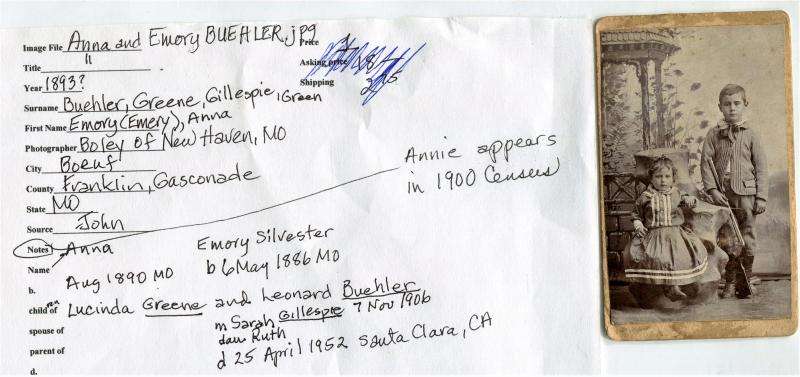 Image File Anna and Emory BUEHLER.jpg
Title "
Year 1893?
Surname Buehler, Greene, Gillespie, Green
First Name Emory (Emery), Anna
Photographer Boley of New Haven, MO
City Boeuf
County Franklin, Gasconade
State MO
Source John
Price
Asking price
Shipping
Annie appears
in 1900 Census
Notes Anna
Emory Silvester
Name
b. Aug 1890 MO
b 6 May 1886 MO
children of Lucinda Greene and Leonard Buehler
spouse of
m Sarah Gillespie 7 Nov 1906
dau Ruth
parent of
d 25 April 1952 Santa Clara, CA
d.